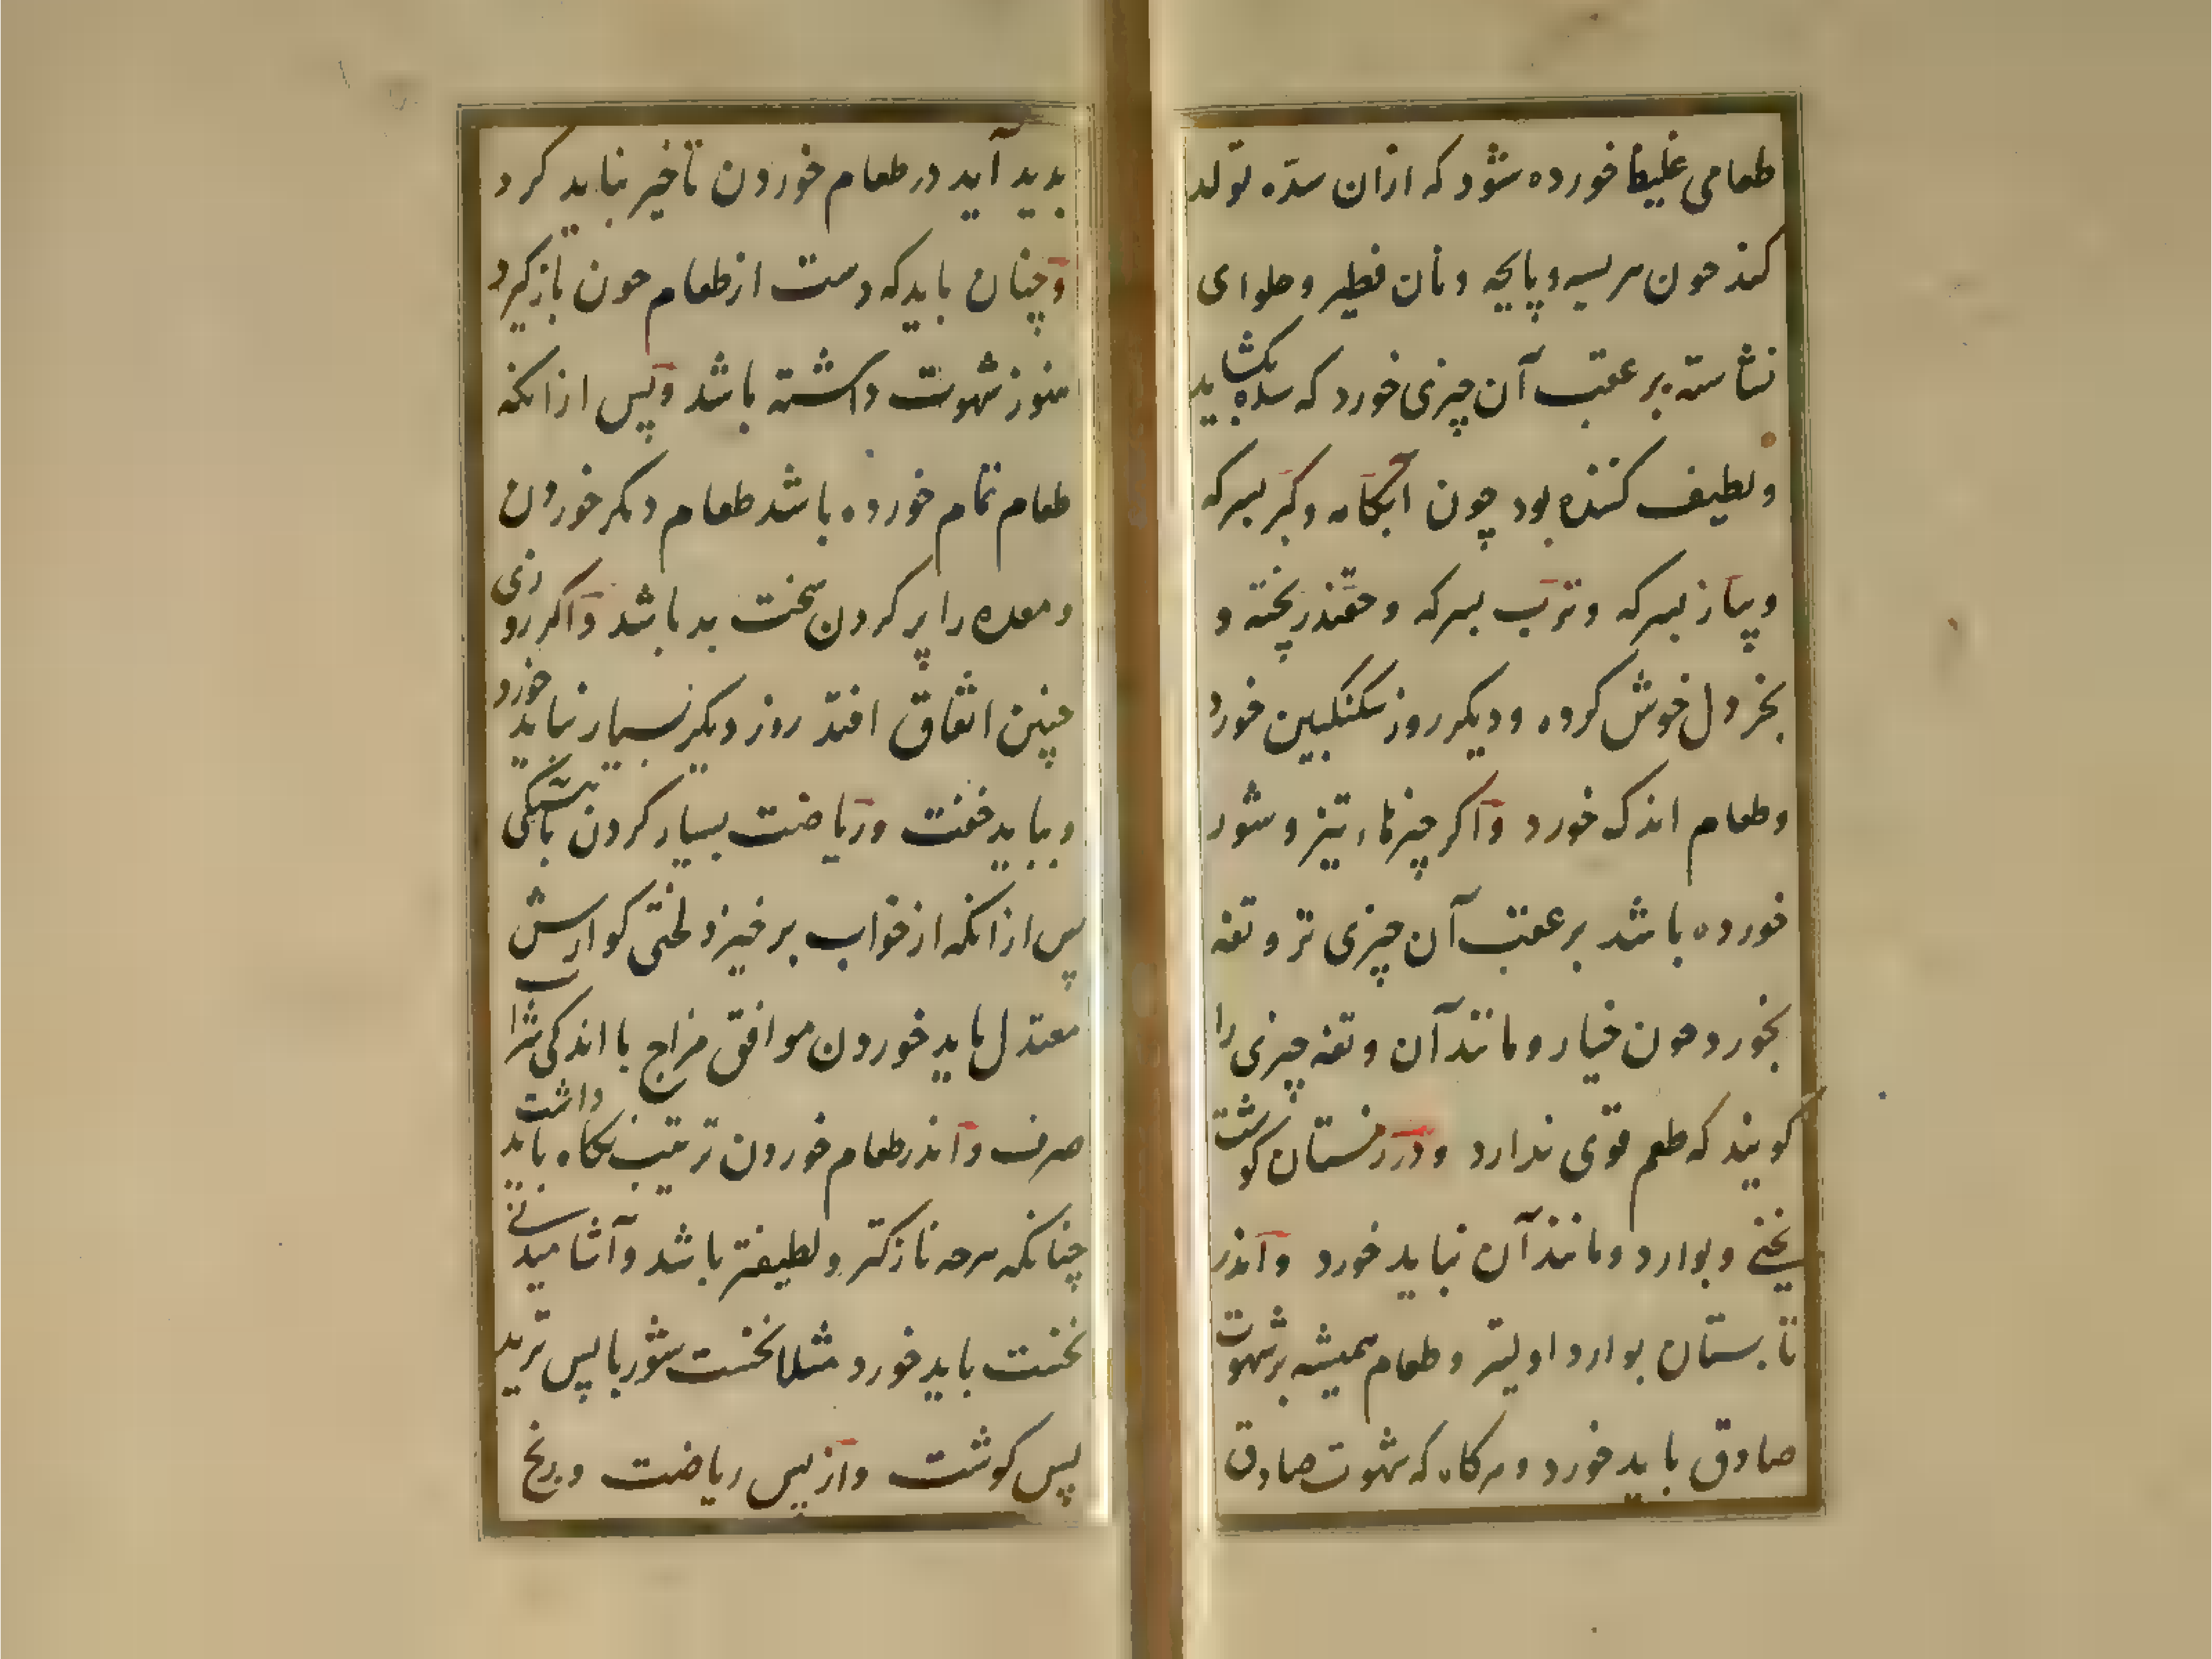 طعامی غلیظ خورده شود که ازان سدّه تولد
کند چون هریسه و پایچه و نان فطیر و حلوای
نشاسته بر عقب آن چیزی خورد که سده بگشاید
و لطیف کننده بود چون آبکامه و کبر بسرکه
و پیاز بسرکه و ترب بسرکه و چقندر پخته و
بخردل خوش کرده و دیکر روز سکنکبین خورد
و طعام اندک خورد و اکر چیزهاء تیز و شور
خورده باشد بر عقب آن چیزی تر و تفه
بخورد چون خیار و مانند آن و تفه چیزی را
کویند که طعم قوی ندارد و در زمستان کوشت
یخنی و بوارد و مانند آن نباید خورد و اندر
تابستان بوارد اولیتر و طعام همیشه بر شهوت
صادق باید خورد و هرکاه که شهوت صادق
بدید آید در طعام خوردن تأخیر نباید کرد
و چنان باید که دست از طعام چون بازکیرد
هنوز شهوت داشته باشد و پس ازانکه
طعام تمام خورده باشد طعام دیکر خوردن
و معده را پر کردن سخت بد باشد و اکر روزی
چنین اتفاق افتد روز دیکر بسیار نباید خورد
و بباید خفت و ریاضت بسیار کردن باهستکی
پس ازانکه از خواب برخیزد لختی کوارش
معتدل باید خوردن موافق مزاج با اندکی شراب
صرف و اندر طعام خوردن ترتیب نکاه باید داشت
چنانکه هرچه نازکتر و لطیفتر باشد و آشامیدنی
نخست باید خورد مثلا نخست شوربا پس ترید
پس کوشت و از پس ریاضت و رنج